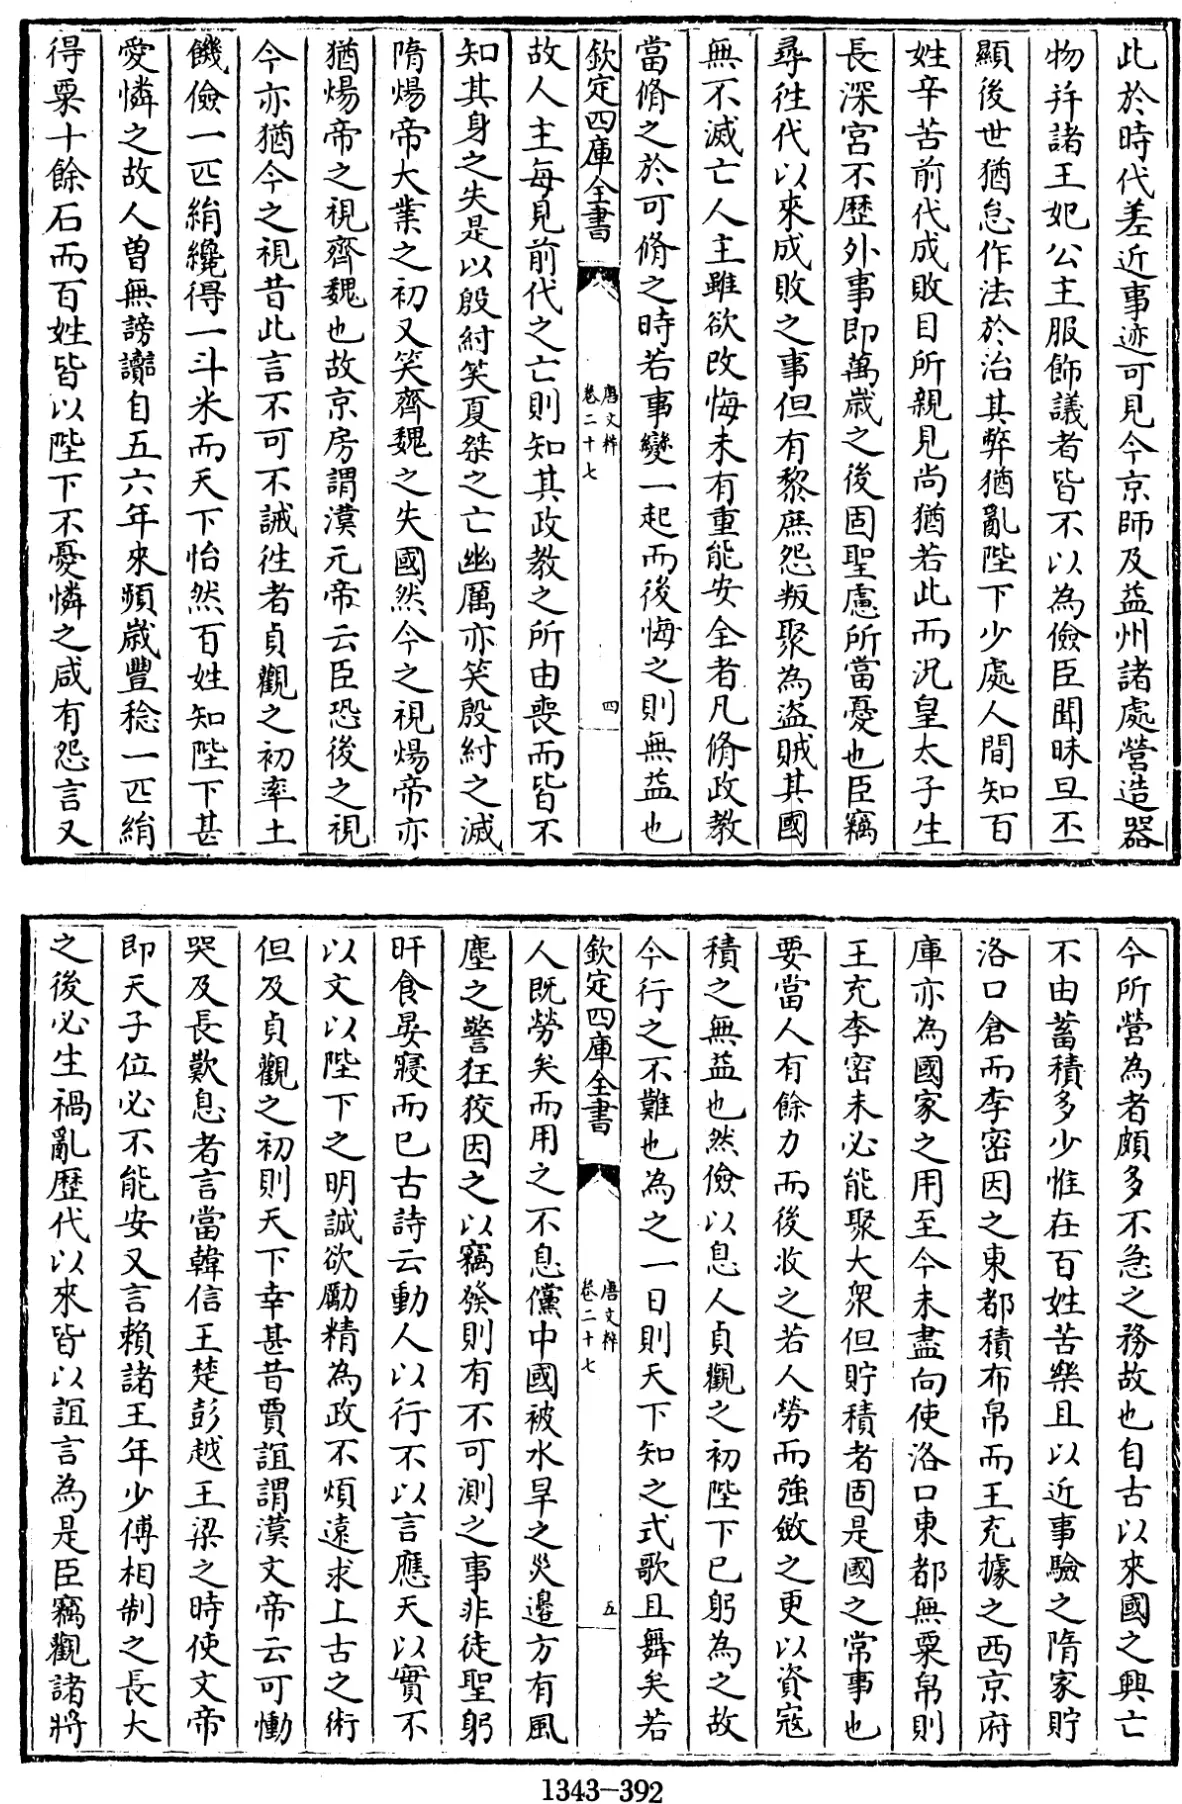 此於時代差近事迹可見今京師及益州諸處營造器
物并諸王妃公主服飾議者皆不以為儉臣聞昧旦丕
顯後世猶怠作法於治其弊猶亂陛下少處人間知百
姓辛苦前代成敗目所親見尚猶若此而況皇太子生
長深宮不歷外事即萬歲之後固聖慮所當憂也臣竊
尋往代以來成敗之事但有黎庶怨叛聚為盜賊其國
無不滅亡人主雖欲改悔未有重能安全者凡脩政教
當脩之於可脩之時若事變一起而後悔之則無益也
欽定四庫全書
唐文粹
卷二十七
四
故人主每見前代之亡則知其政教之所由喪而皆不
知其身之失是以殷紂笑夏桀之亡幽厲亦笑殷紂之滅
隋煬帝大業之初又笑齊魏之失國然今之視煬帝亦
猶煬帝之視齊魏也故京房謂漢元帝云臣恐後之視
今亦猶今之視昔此言不可不誡往者貞觀之初率土
饑儉一匹絹纔得一斗米而天下怡然百姓知陛下甚
愛憐之故人曽無謗讟自五六年來頻歲豐稔一匹絹
得粟十餘石而百姓皆以陛下不憂憐之咸有怨言又
今所營為者頗多不急之務故也自古以來國之興亡
不由蓄積多少惟在百姓苦樂且以近事驗之隋家貯
洛口倉而李密因之東都積布帛而王充據之西京府
庫亦為國家之用至今未盡向使洛口東都無粟帛則
王充李密未必能聚大衆但貯積者固是國之常事也
要當人有餘力而後收之若人勞而強斂之更以資寇
積之無益也然儉以息人貞觀之初陛下已躬為之故
今行之不難也為之一日則天下知之式歌且舞矣若
欽定四庫全書
唐文粹
卷二十七
五
人既勞矣而用之不息儻中國被水旱之災邊方有風
塵之警狂狡因之以竊發則有不可測之事非徒聖躬
旰食晏寢而已古詩云動人以行不以言應天以實不
以文以陛下之明誠欲勵精為政不煩遠求上古之術
但及貞觀之初則天下幸甚昔賈誼謂漢文帝云可慟
哭及長歎息者言當韓信王楚彭越王梁之時使文帝
即天子位必不能安又言賴諸王年少傅相制之長大
之後必生禍亂歷代以來皆以誼言為是臣竊觀諸將
1343-392